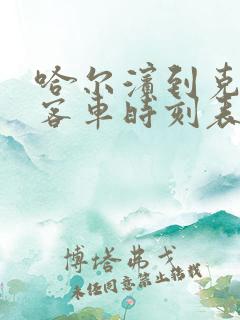 哈尔滨到克
客车时刻表
博塔弗戈
未经同意禁止转载